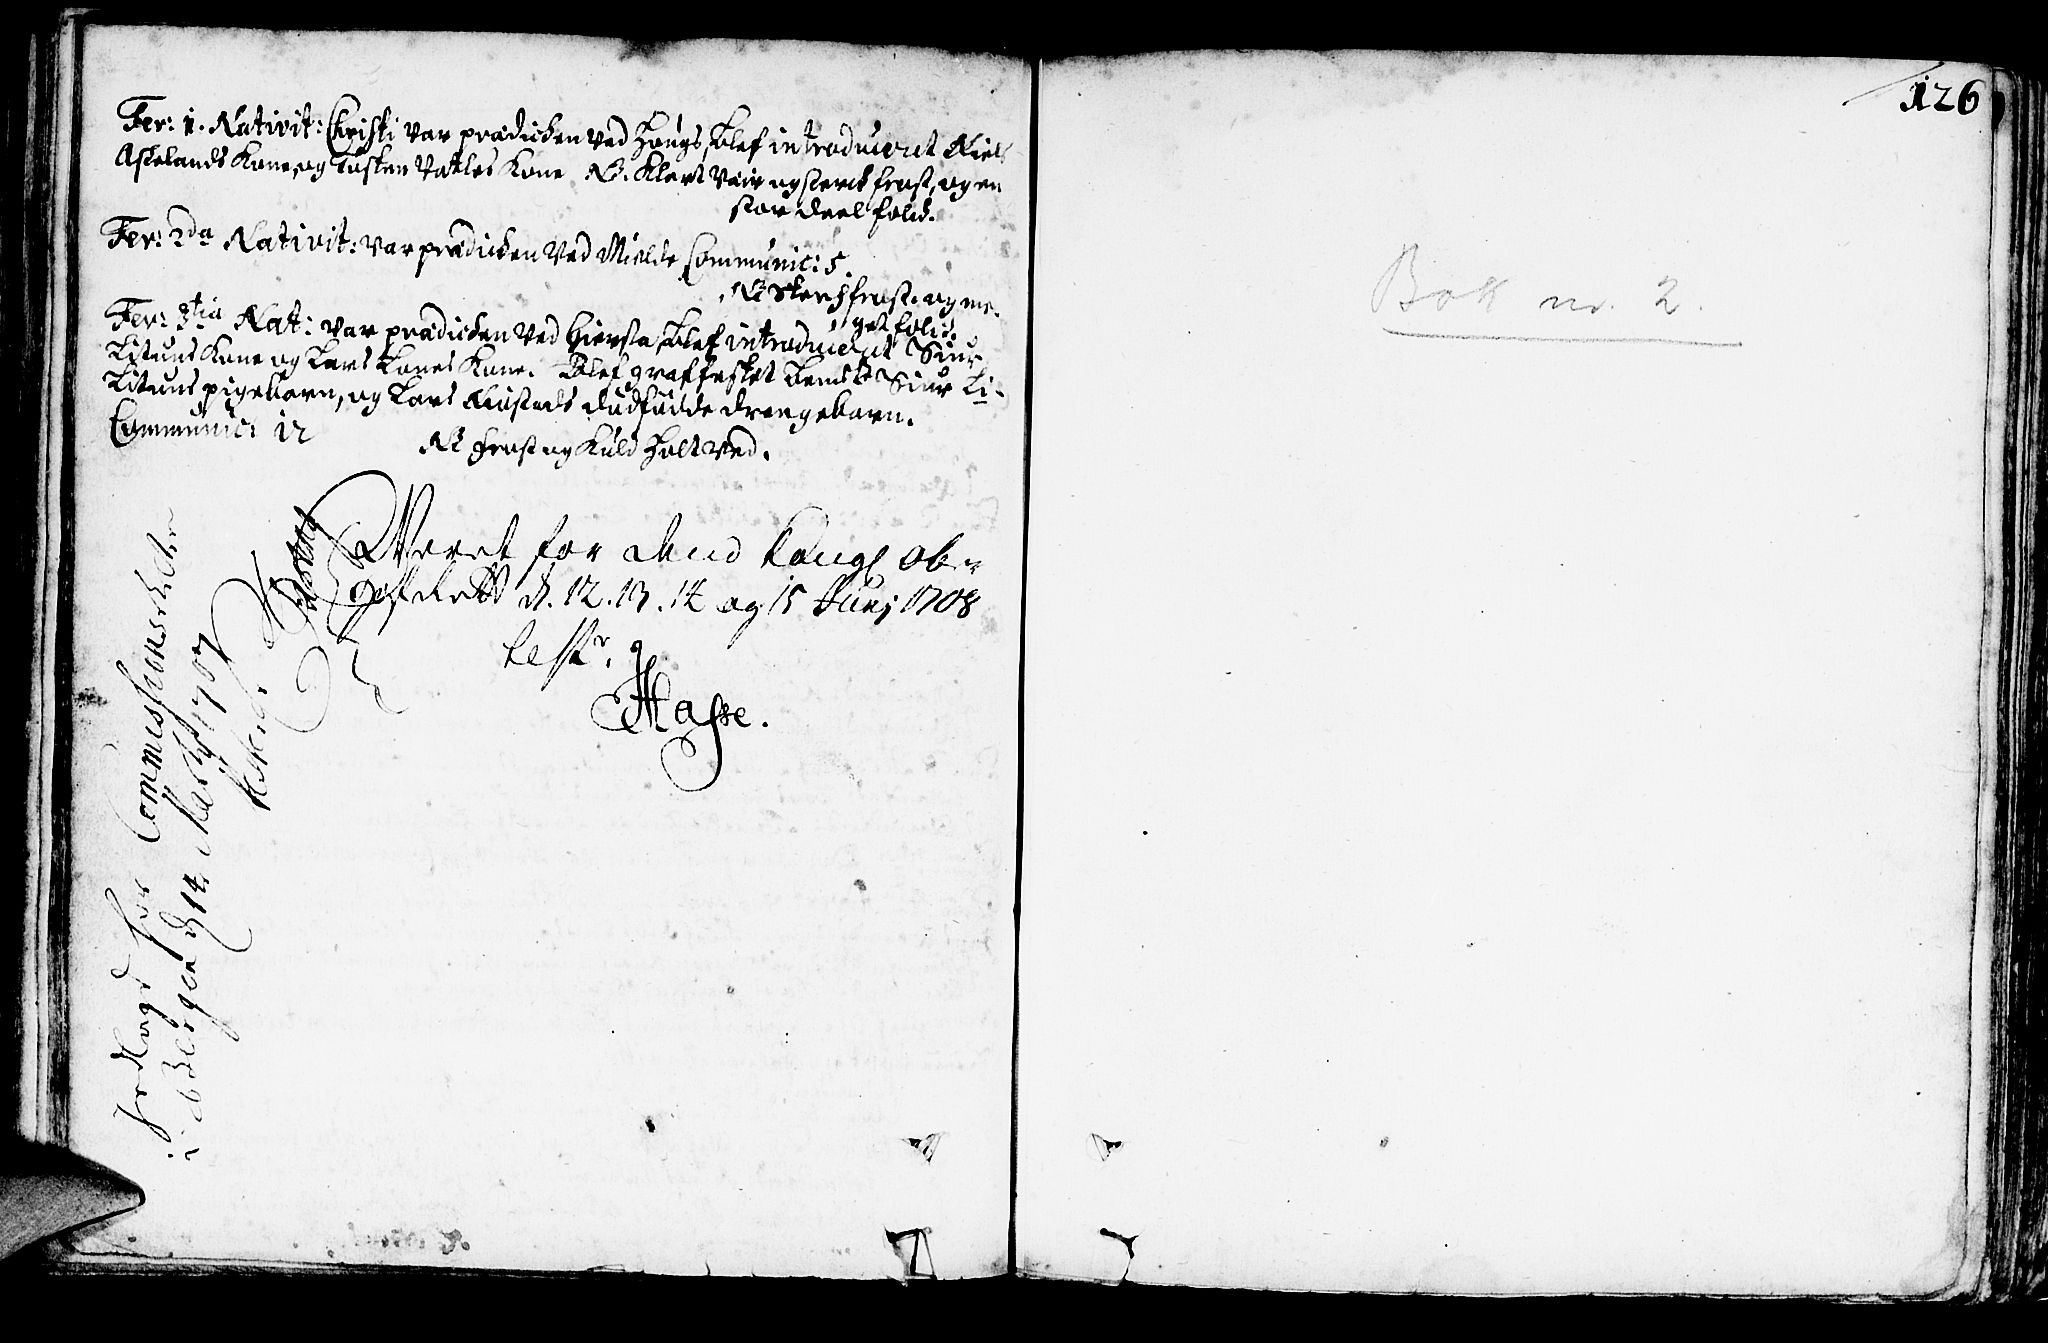 Fer: 1. Nativit: Christi var prædicken ved Hougs, blef introduceret Niels
Askelands Kone, og Tosten Vatles Kone NB. Klart veir og sterck frost, og en
stor deel folck.
Fer: 2da Nativit: var prædicken ved Mielde Communic: 5.
NB sterck frost. og me-
get folck.
Fer: 3tia Nat: var prædicken ved Giersta, blef introduceret Siur
Lituns Kone og Lars Lones Kone. Blef graffestet bemte Siur Li-
Lituns pigebarn, og Lars dødfødde drengebarn.
Communic: 12
NB frost og Kuld holt ved.
Været for dend Kongl ober
hoffrett d. 12. 13. 14 og 15 Junj 1708
test.
Hasse.
fredlagd for Commissions Retten
i Bergen d 14 Marty 1707
test.
126
Bok nr. 2.